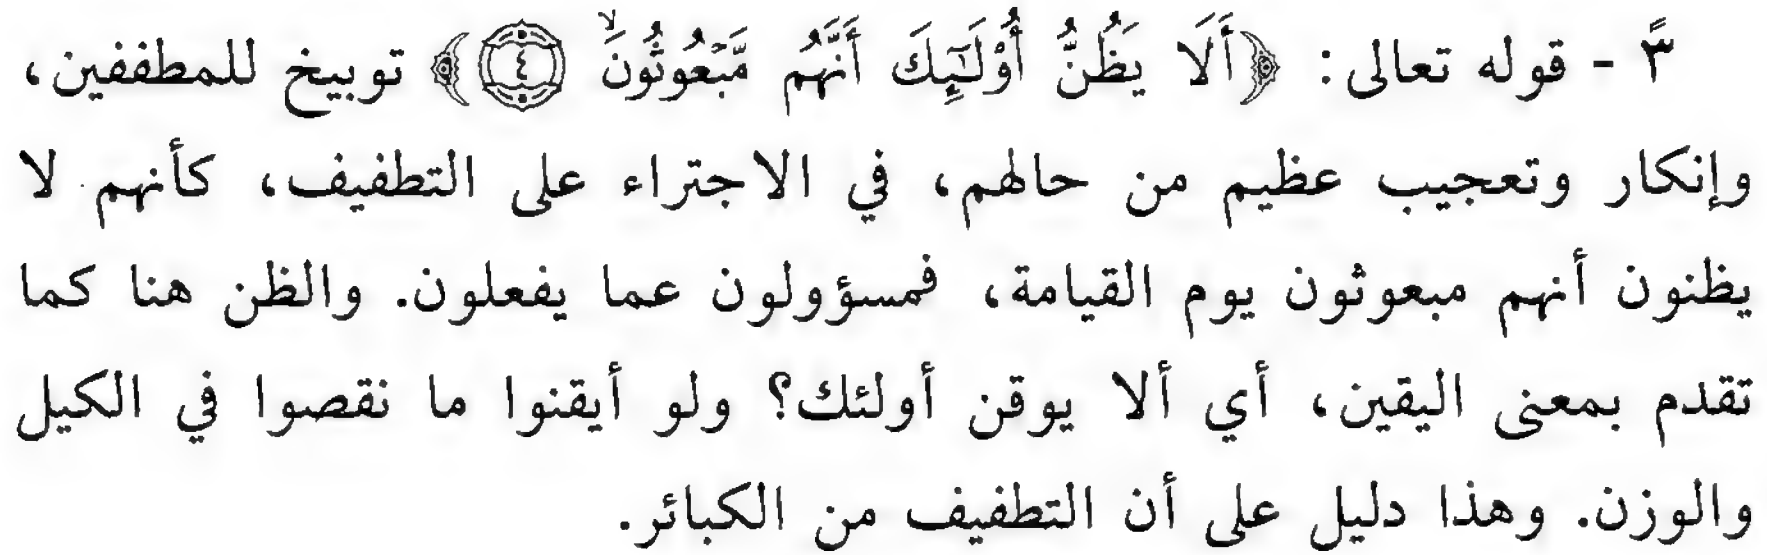 ٣ً - قوله تعالى: ﴿أَلَا يَظُنُّ أُوْلَٰٓئِكَ أَنَّهُم مَّبْعُوثُونَۙ ٤﴾ توبيخ للمطففين،
وإنكار وتعجيب عظيم من حالهم، في الاجتراء على التطفيف، كأنهم لا
يظنون أنهم مبعوثون يوم القيامة، فمسؤولون عما يفعلون. والظن هنا كما
تقدم بمعنى اليقين، أي ألا يوقن أولئك؟ ولو أيقنوا ما نقصوا في الكيل
والوزن. وهذا دليل على أن التطفيف من الكبائر.